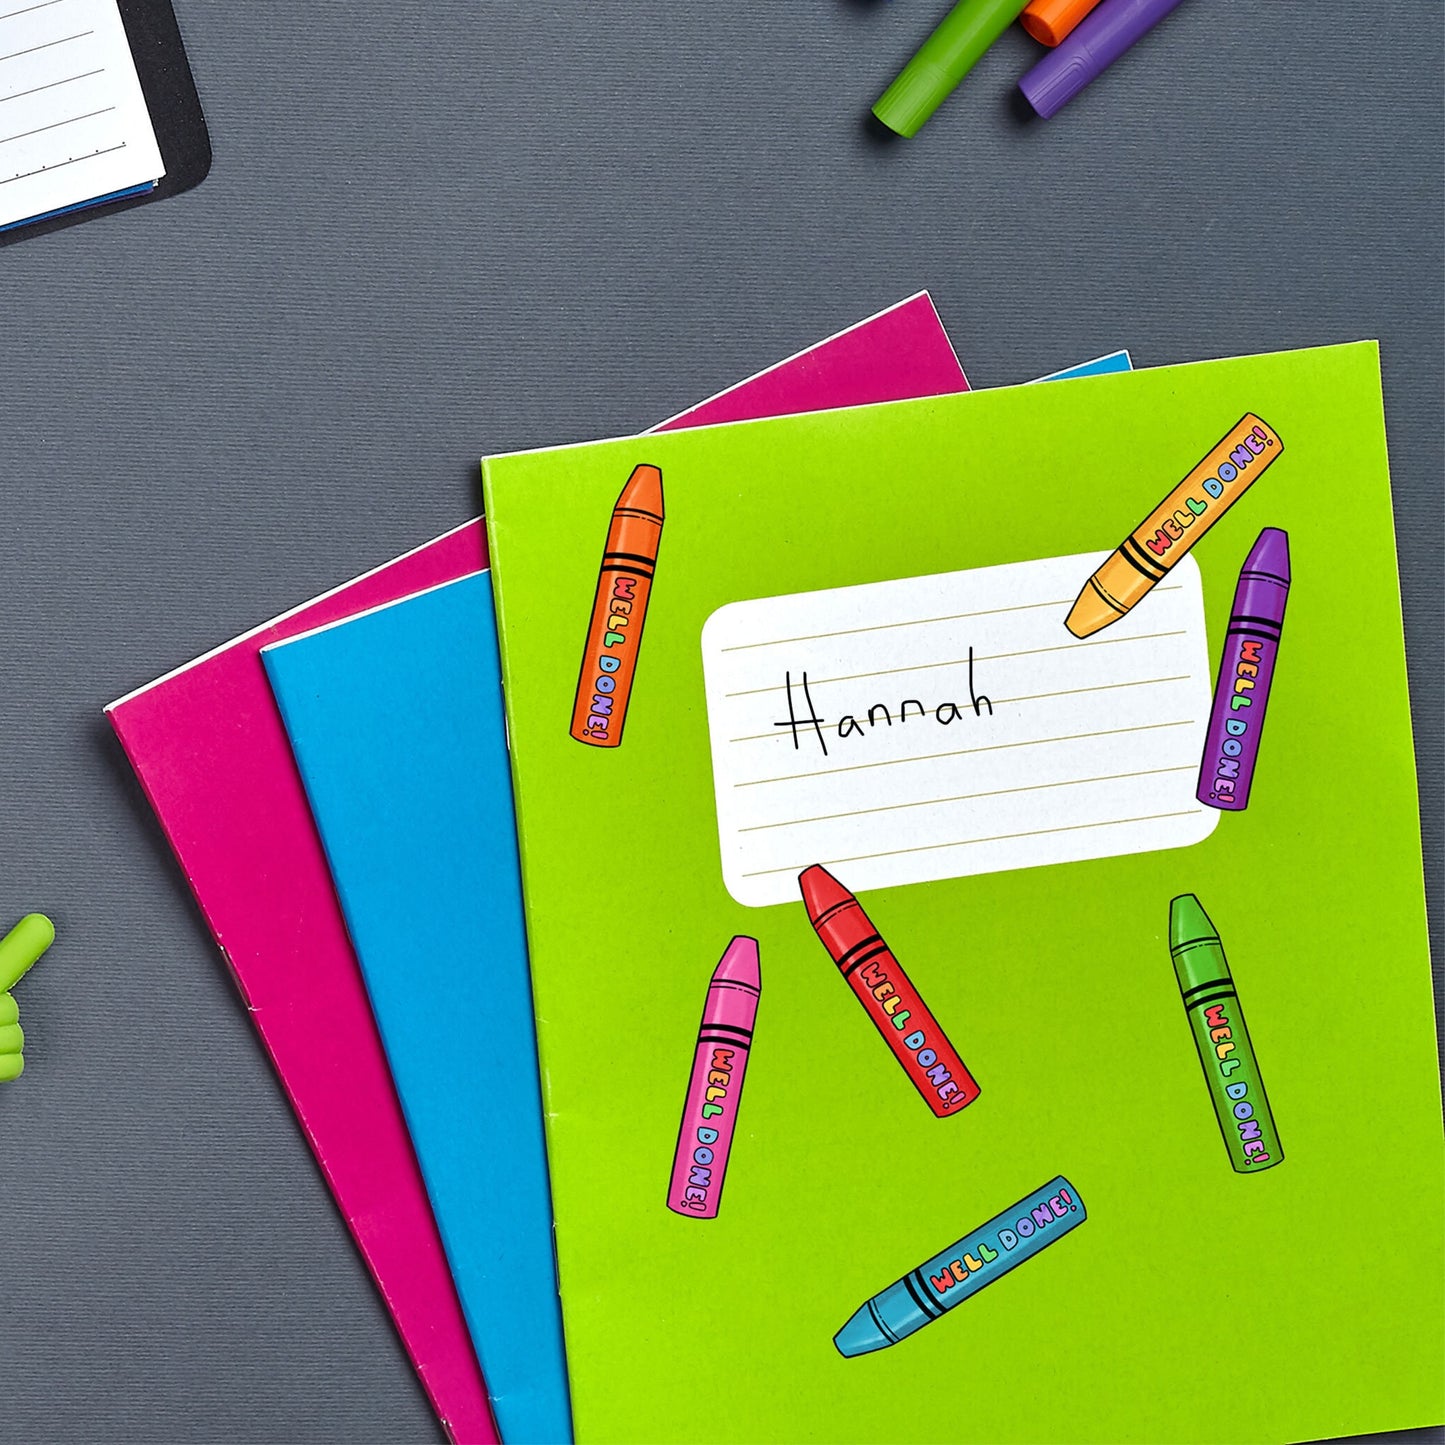 WELL DONE!
WELL DONE!
Hannah
WELL DONE!
WELL DONE!
WELL DONE!
WELL DONE!
WELL DONE!